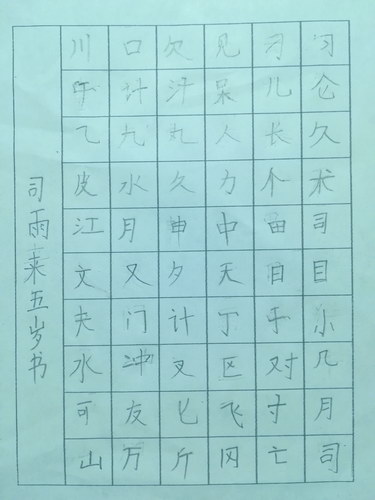 川口欠见习习
牛计汗呆儿仑
乙九丸人长久
皮水久力个术
江月申中由司
文又夕天自目
夫门计丁手小
水冲叉区对几
可友匕飞寸月
山万斤冈亡司
司雨来五岁书